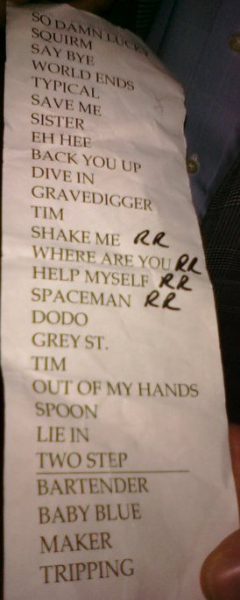 SO DAMN LUCKY
SQUIRM
SAY BYE
WORLD ENDS
TYPICAL
SAVE ME
SISTER
EH HEE
BACK YOU UP
DIVE IN
GRAVEDIGGER
TIM
SHAKE ME RR
WHERE ARE YOU RR
HELP MYSELF RR
SPACEMAN RR
DODO
GREY ST.
TIM
OUT OF MY HANDS
SPOON
LIE IN
TWO STEP
BARTENDER
BABY BLUE
MAKER
TRIPPING